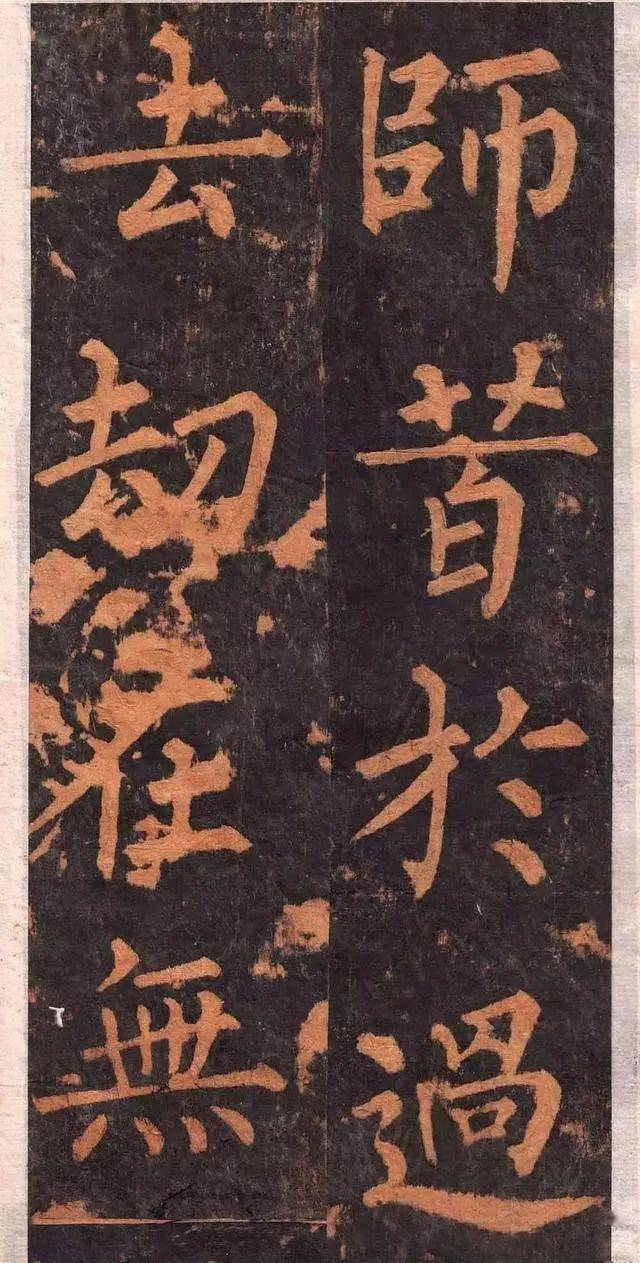 師昔於過
去劫在無